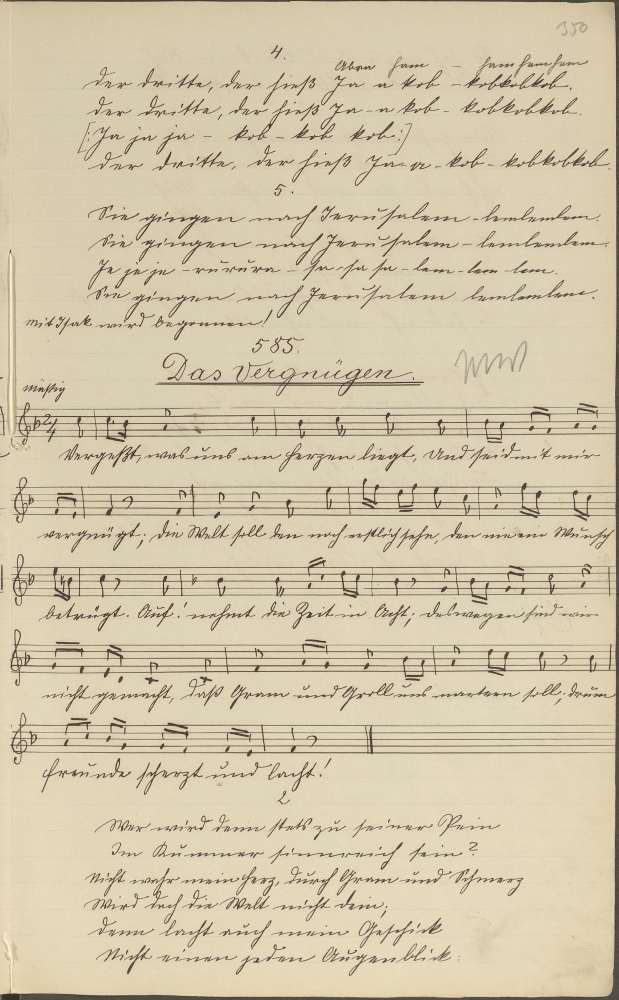 350
4.
Abra ham – hamhamham
Der dritte, der hieß Ja a kob – kobkobkob.
Der dritte, der hieß Ja - a kob – kobkobkob.
[: Ja ja ja – kob – kob kob :]
Der dritte, der hieß Ja - a - kob – kobkobkob.
5.
Sie gingen nach Jerusalem – lemlemlem.
Sie gingen nach Jerusalem – lemlemlem.
Je je je – rururu – sa - sa sa – lem - lem - lem.
Sie gingen nach Jerusalem lemlemlem.
mit Isak wird begonnen!
585.
Das Vergnügen.
mäßig
Vergeßt, was uns am Herzen liegt, Und seid mit mir
vergnügt; die Welt soll den noch sehn, den nie ein Wunsch
betrügt. Auf! nehmt die Zeit in Acht; deswegen sind wir
nicht gemacht, daß Gram und Groll uns martern soll; drum
Freunde scherzt und lacht!
2
Wer wird denn stets zu seiner Pein
Im Kummer sinnreich sein?
Nicht wahr mein Herz, durch Gram und Schmerz
Wird doch die Welt nicht dein;
Denn lacht auch mein Geschick
Nicht einen jeden Augenblick.